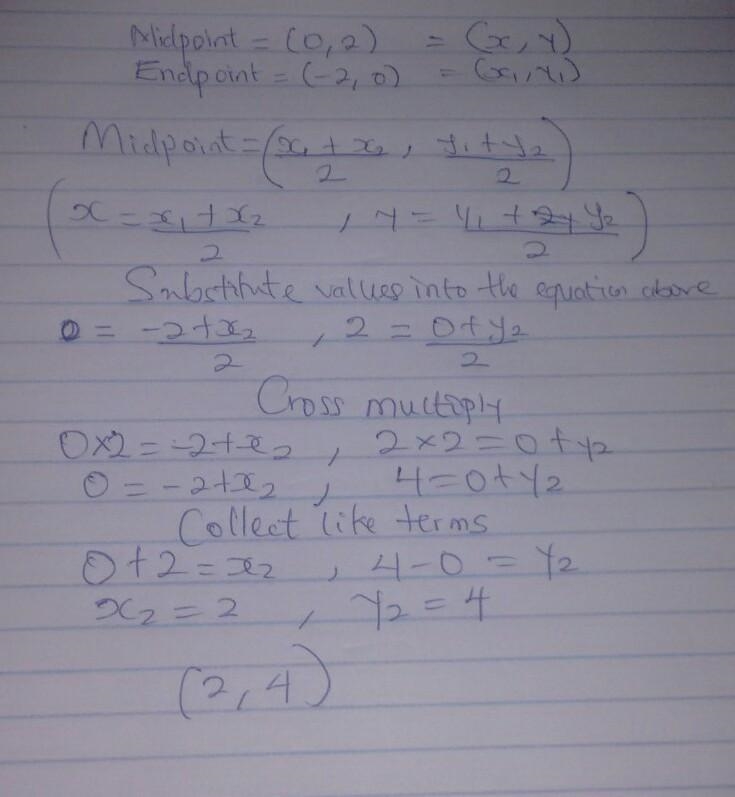 Midpoint = (0,2) = (x, y)
Endpoint = (-2, 0) = (x₁, y₁)
Midpoint = (x₁ + x₂ / 2 , y₁ + y₂ / 2)
(x = x₁ + x₂ / 2 , y = y₁ + y₂ / 2)
Substitute values into the equation above
0 = -2 + x₂ / 2 , 2 = 0 + y₂ / 2
Cross multiply
0×2 = -2 + x₂ , 2×2 = 0 + y₂
0 = -2 + x₂ , 4 = 0 + y₂
Collect like terms
0 + 2 = x₂ , 4 - 0 = y₂
x₂ = 2 , y₂ = 4
(2, 4)